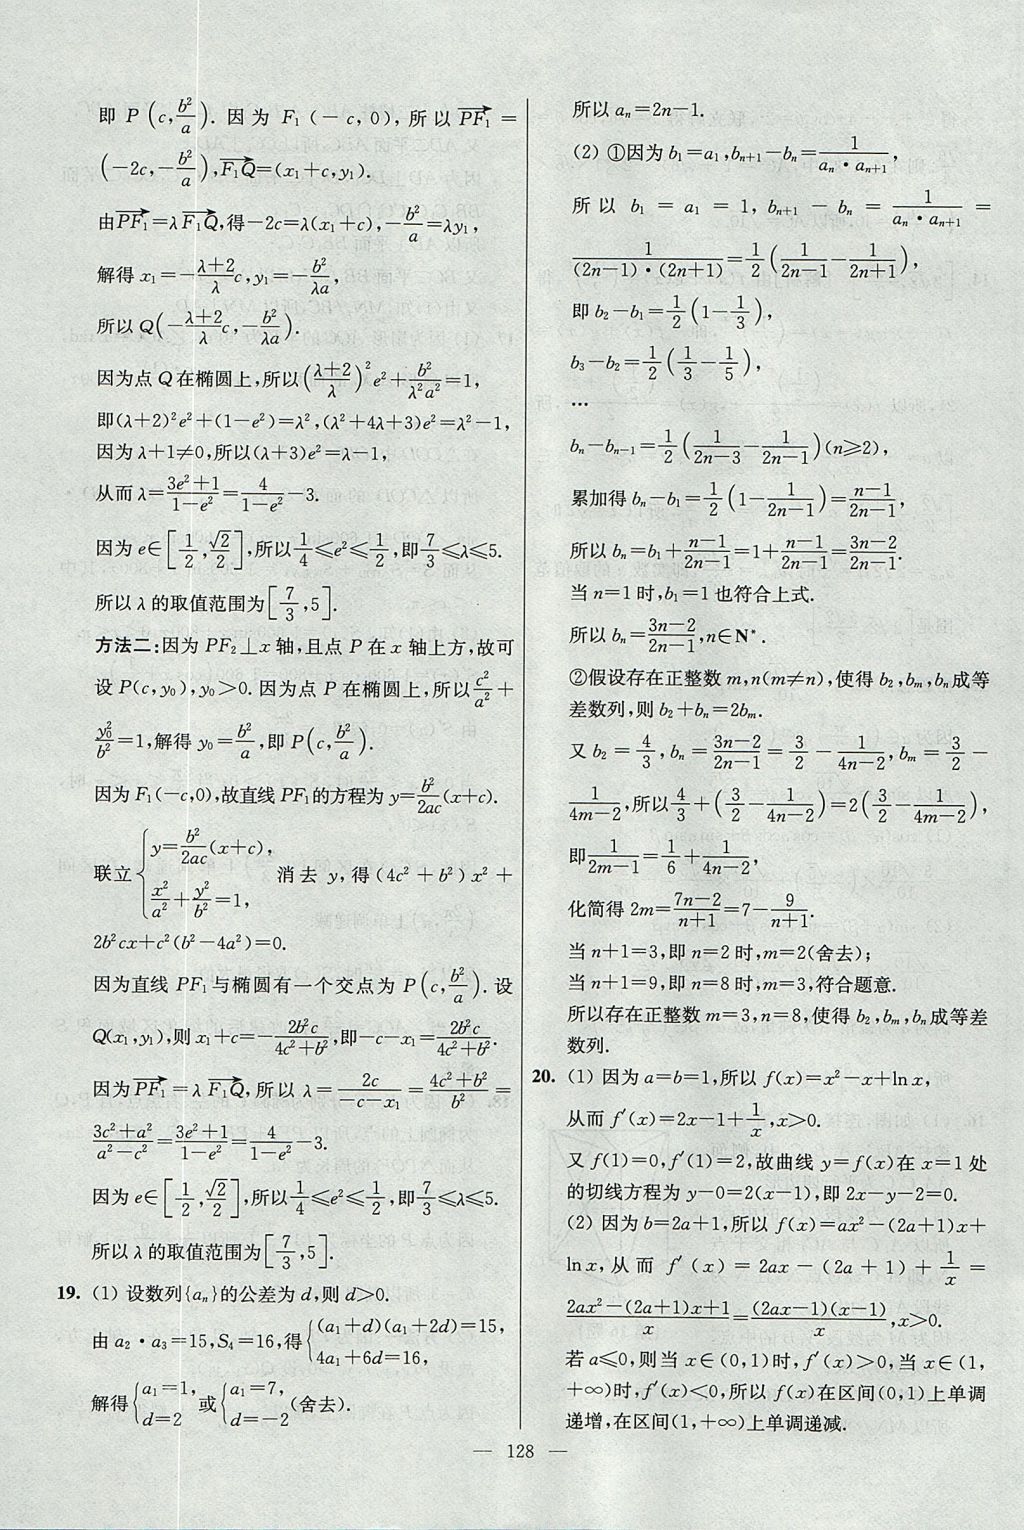 即 P(c, b²/a). 因为 F₁(−c,0),所以 →PF₁=
(−2c, −b²/a), →F₁Q=(x₁+c, y₁).
由→PF₁=λ→F₁Q,得−2c=λ(x₁+c), −b²/a=λy₁,
解得 x₁=−(λ+2)/λ c, y₁=−b²/λa.
所以 Q(−(λ+2)/λ c, −b²/λa).
因为点 Q 在椭圆上,所以((λ+2)/λ)²e²+b²/λ²a²=1,
即(λ+2)²e²+(1−e²)=λ²,(λ²+4λ+3)e²=λ²−1,
因为 λ+1≠0,所以(λ+3)e²=λ−1,
从而 λ=(3e²+1)/(1−e²)=4/(1−e²)−3.
因为 e∈[1/2, √2/2],所以1/4≤e²≤1/2,即7/3≤λ≤5.
所以 λ 的取值范围为[7/3, 5].
方法二:因为 PF₂⊥x 轴,且点 P 在 x 轴上方,故可
设 P(c,y₀),y₀>0.因为点 P 在椭圆上,所以c²/a²+
y₀²/b²=1,解得 y₀=b²/a,即 P(c, b²/a).
因为 F₁(−c,0),故直线 PF₁的方程为 y=b²/2ac(x+c).
联立{y=b²/2ac(x+c), x²/a²+y²/b²=1, 消去 y,得(4c²+b²)x²+
2b²cx+c²(b²−4a²)=0.
因为直线 PF₁与椭圆有一个交点为 P(c, b²/a).设
Q(x₁,y₁),则 x₁+c=−2b²c/(4c²+b²),即−c−x₁=2b²c/(4c²+b²).
因为→PF₁=λ→F₁Q,所以 λ=2c/(−c−x₁)=(4c²+b²)/b²=
(3c²+a²)/(a²−c²)=(3e²+1)/(1−e²)=4/(1−e²)−3.
因为 e∈[1/2, √2/2],所以1/4≤e²≤1/2,即7/3≤λ≤5.
所以 λ 的取值范围为[7/3, 5].
19. (1) 设数列{aₙ}的公差为 d,则 d>0.
由 a₂·a₃=15,S₄=16,得{(a₁+d)(a₁+2d)=15, 4a₁+6d=16,
解得{a₁=1, d=2 或{a₁=7, d=−2 (舍去).
所以 aₙ=2n−1.
(2) ①因为 b₁=a₁,bₙ₊₁−bₙ=1/(aₙ·aₙ₊₁),
所以 b₁=a₁=1, bₙ₊₁−bₙ=1/(aₙ·aₙ₊₁)=
1/((2n−1)·(2n+1))=1/2(1/(2n−1)−1/(2n+1)),
即 b₂−b₁=1/2(1−1/3),
b₃−b₂=1/2(1/3−1/5),
…
bₙ−bₙ₋₁=1/2(1/(2n−3)−1/(2n−1))(n≥2),
累加得 bₙ−b₁=1/2(1−1/(2n−1))=(n−1)/(2n−1),
所以 bₙ=b₁+(n−1)/(2n−1)=1+(n−1)/(2n−1)=(3n−2)/(2n−1).
当 n=1 时,b₁=1 也符合上式.
所以 bₙ=(3n−2)/(2n−1),n∈N*.
②假设存在正整数 m,n(m≠n),使得 b₂,bₘ,bₙ成等
差数列,则 b₂+bₙ=2bₘ.
又 b₂=4/3,bₙ=(3n−2)/(2n−1)=3/2−1/(4n−2),bₘ=3/2−
1/(4m−2),所以4/3+(3/2−1/(4n−2))=2(3/2−1/(4m−2)),
即1/(2m−1)=1/6+1/(4n−2),
化简得 2m=(7n−2)/(n+1)=7−9/(n+1).
当 n+1=3,即 n=2 时,m=2(舍去);
当 n+1=9,即 n=8 时,m=3,符合题意.
所以存在正整数 m=3,n=8,使得 b₂,bₘ,bₙ成等差
数列.
20. (1) 因为 a=b=1,所以 f(x)=x²−x+ln x,
从而 f′(x)=2x−1+1/x,x>0.
又 f(1)=0,f′(1)=2,故曲线 y=f(x)在 x=1 处
的切线方程为 y−0=2(x−1),即 2x−y−2=0.
(2) 因为 b=2a+1,所以 f(x)=ax²−(2a+1)x+
ln x,从而 f′(x)=2ax−(2a+1)+1/x=
(2ax²−(2a+1)x+1)/x=(2ax−1)(x−1)/x,x>0.
若 a≤0,则当 x∈(0,1)时,f′(x)>0,当 x∈(1,
+∞)时,f′(x)<0,所以 f(x)在区间(0,1)上单调
递增,在区间(1,+∞)上单调递减.
— 128 —